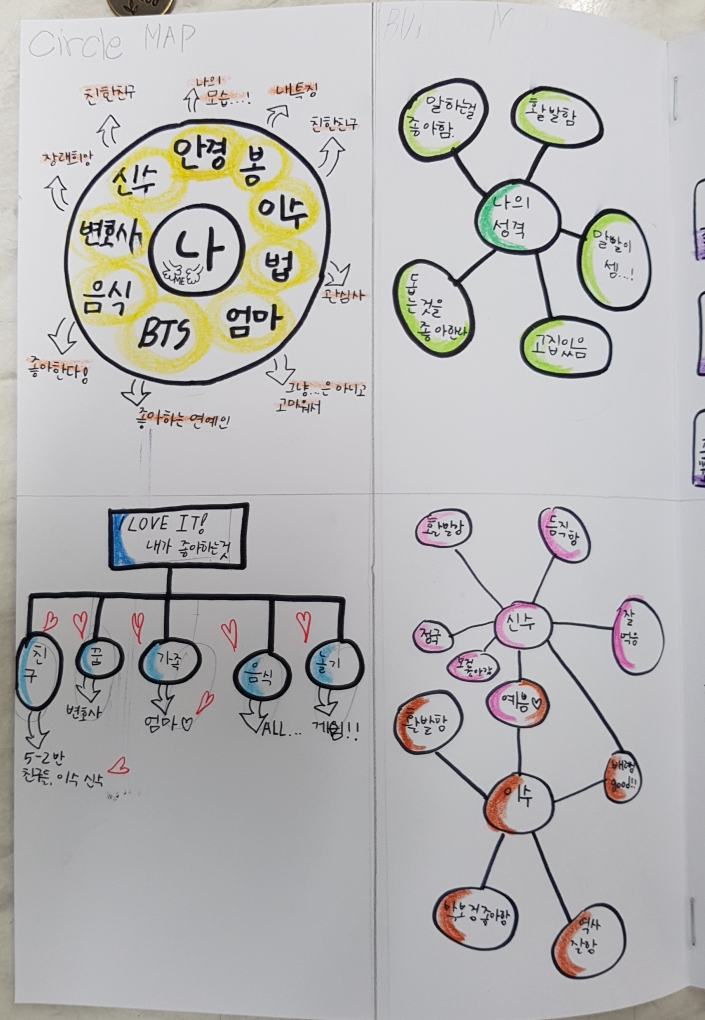 Circle MAP
친한친구
나의
모습...!
내특징
친한친구
장래희망
안경
봉
신수
이수
변호사
나
ME
법
음식
BTS
엄마
관심사
좋아한다!
좋아하는 연예인
그냥...은 아니고
고마워서
말하는걸
좋아함.
활발함
나의
성격
말빨이
셈...!
돕
는것을
좋아한다
고집있음
LOVE IT!
내가 좋아하는것
친
구
꿈
가족
음식
놀기
변호사
엄마♡
ALL...
게임!!
5-2반
친구들, 이수 신수
활발함
듬직함
신수
잘
먹음
정국
좋아함
예쁨♡
활발함
이수
배려
good!!
좋아함
역사
잘함